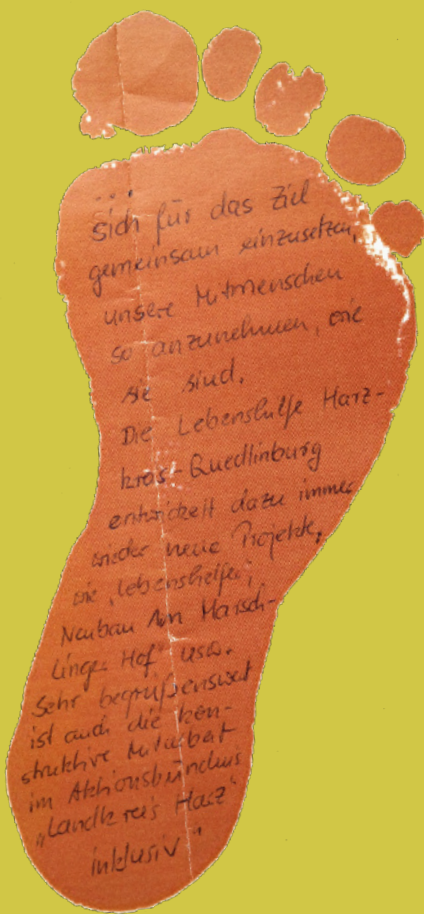 ...
sich für das Ziel
gemeinsam einzusetzen,
unsere Mitmenschen
so anzunehmen, wie
sie sind.
Die Lebenshilfe Harz-
kreis-Quedlinburg
entwickelt dazu immer
wieder neue Projekte,
wie "Lebenshelfer",
Neubau "Am Harsch-
linger Hof" usw.
Sehr begrüßenswert
ist auch die kon-
struktive Mitarbeit
im Aktionsbündnis
"Landkreis Harz
inklusiv"